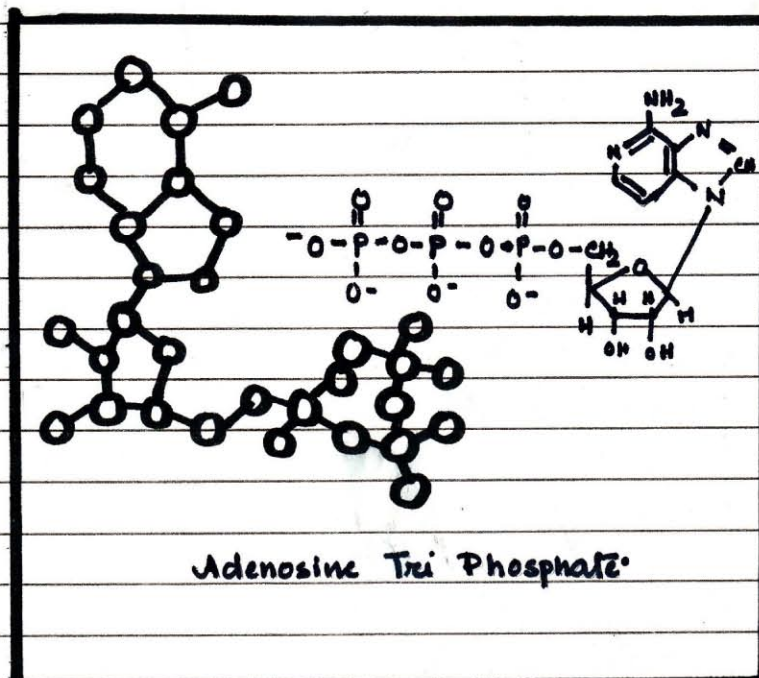 NH2
N N
CH
N
O O O
-O-P-O-P-O-P-O-CH2
O- O- O-
O
H H H H
OH OH
Adenosine Tri Phosphate